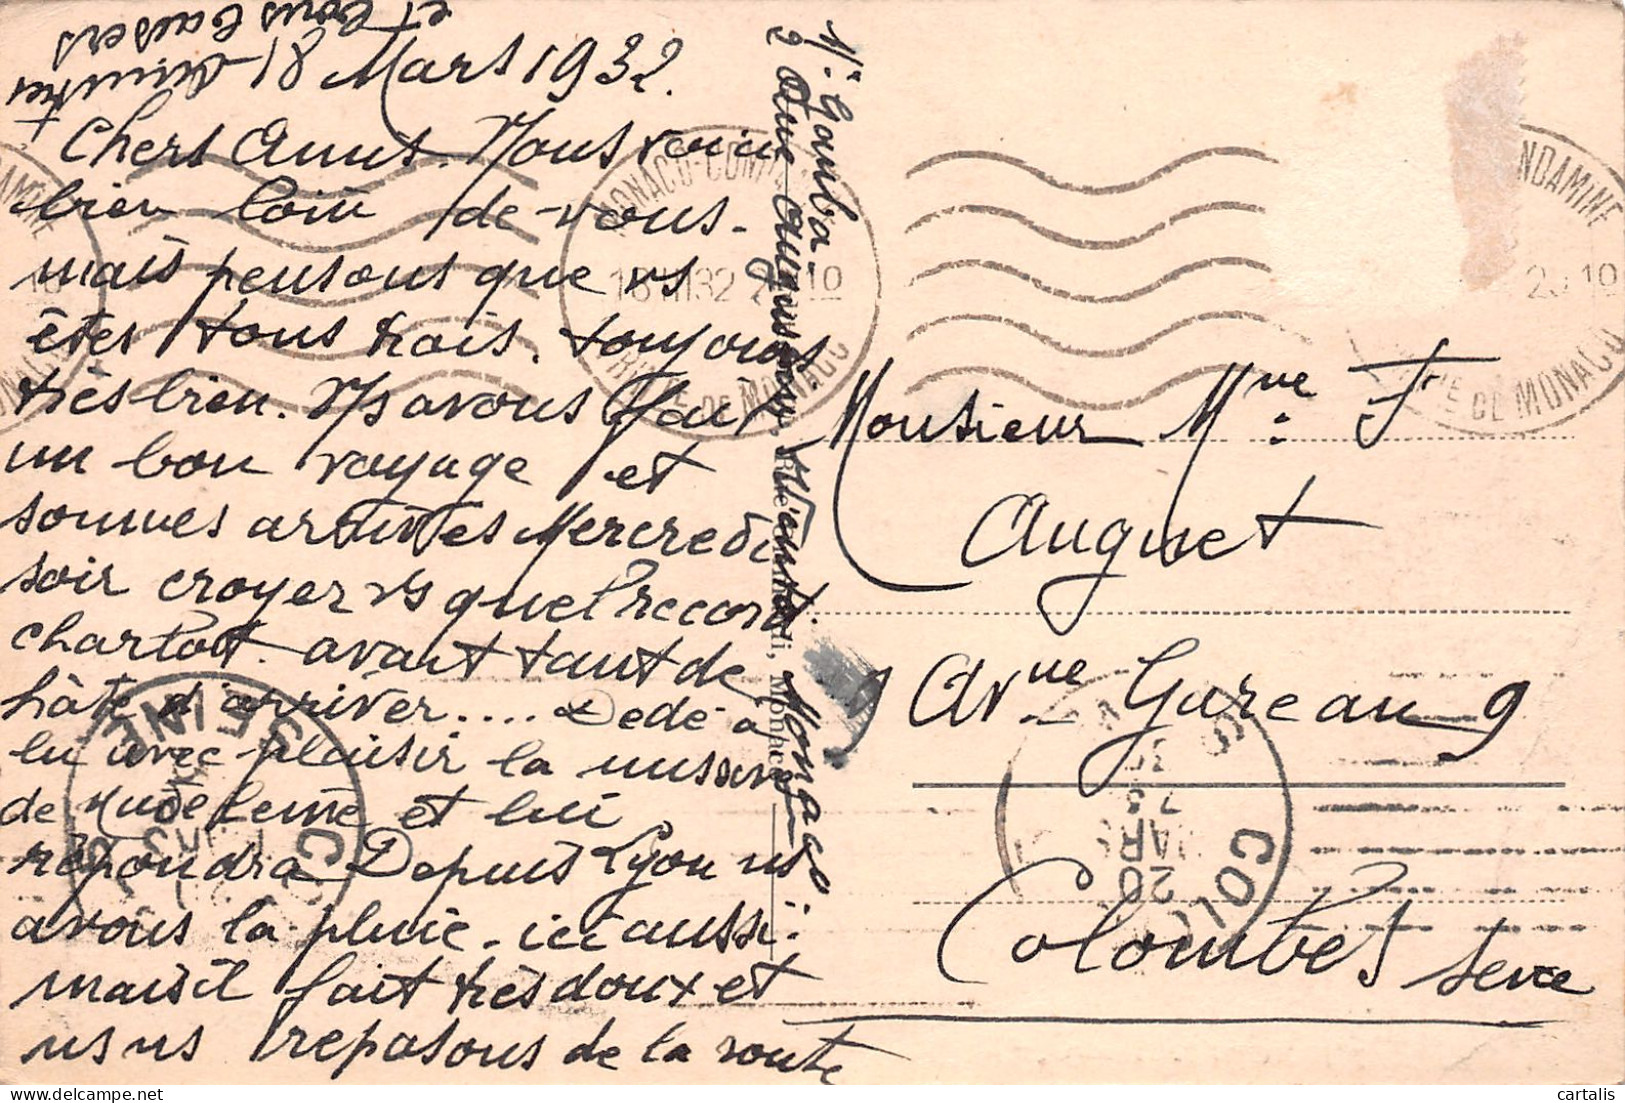 18 Mars 1932.
Chers Amis. Nous voici
bien loin de vous.
mais pensons que vs
êtes tous trois. toujours
très bien. Ns avons fait
un bon voyage et
sommes arrivés Mercredi
soir croyez vs quel record
Charlot avant tant de
hâte d'arriver.... Dédé a
lu avec plaisir la
de et lui
répondra Depuis Lyon ns
avons la pluie. ici aussi
mais il fait très doux et
ns ns reposons de la route
et bons baisers
Monaco
MONACO-CONDAMINE
18 III 32 2010
PRINC. DE MONACO
Monsieur Mme F
Auguet
Avnue Gareau 9
Colombes
Seine
NDAMINE
20 10
DE MONACO
COL
SEINE
cartalis